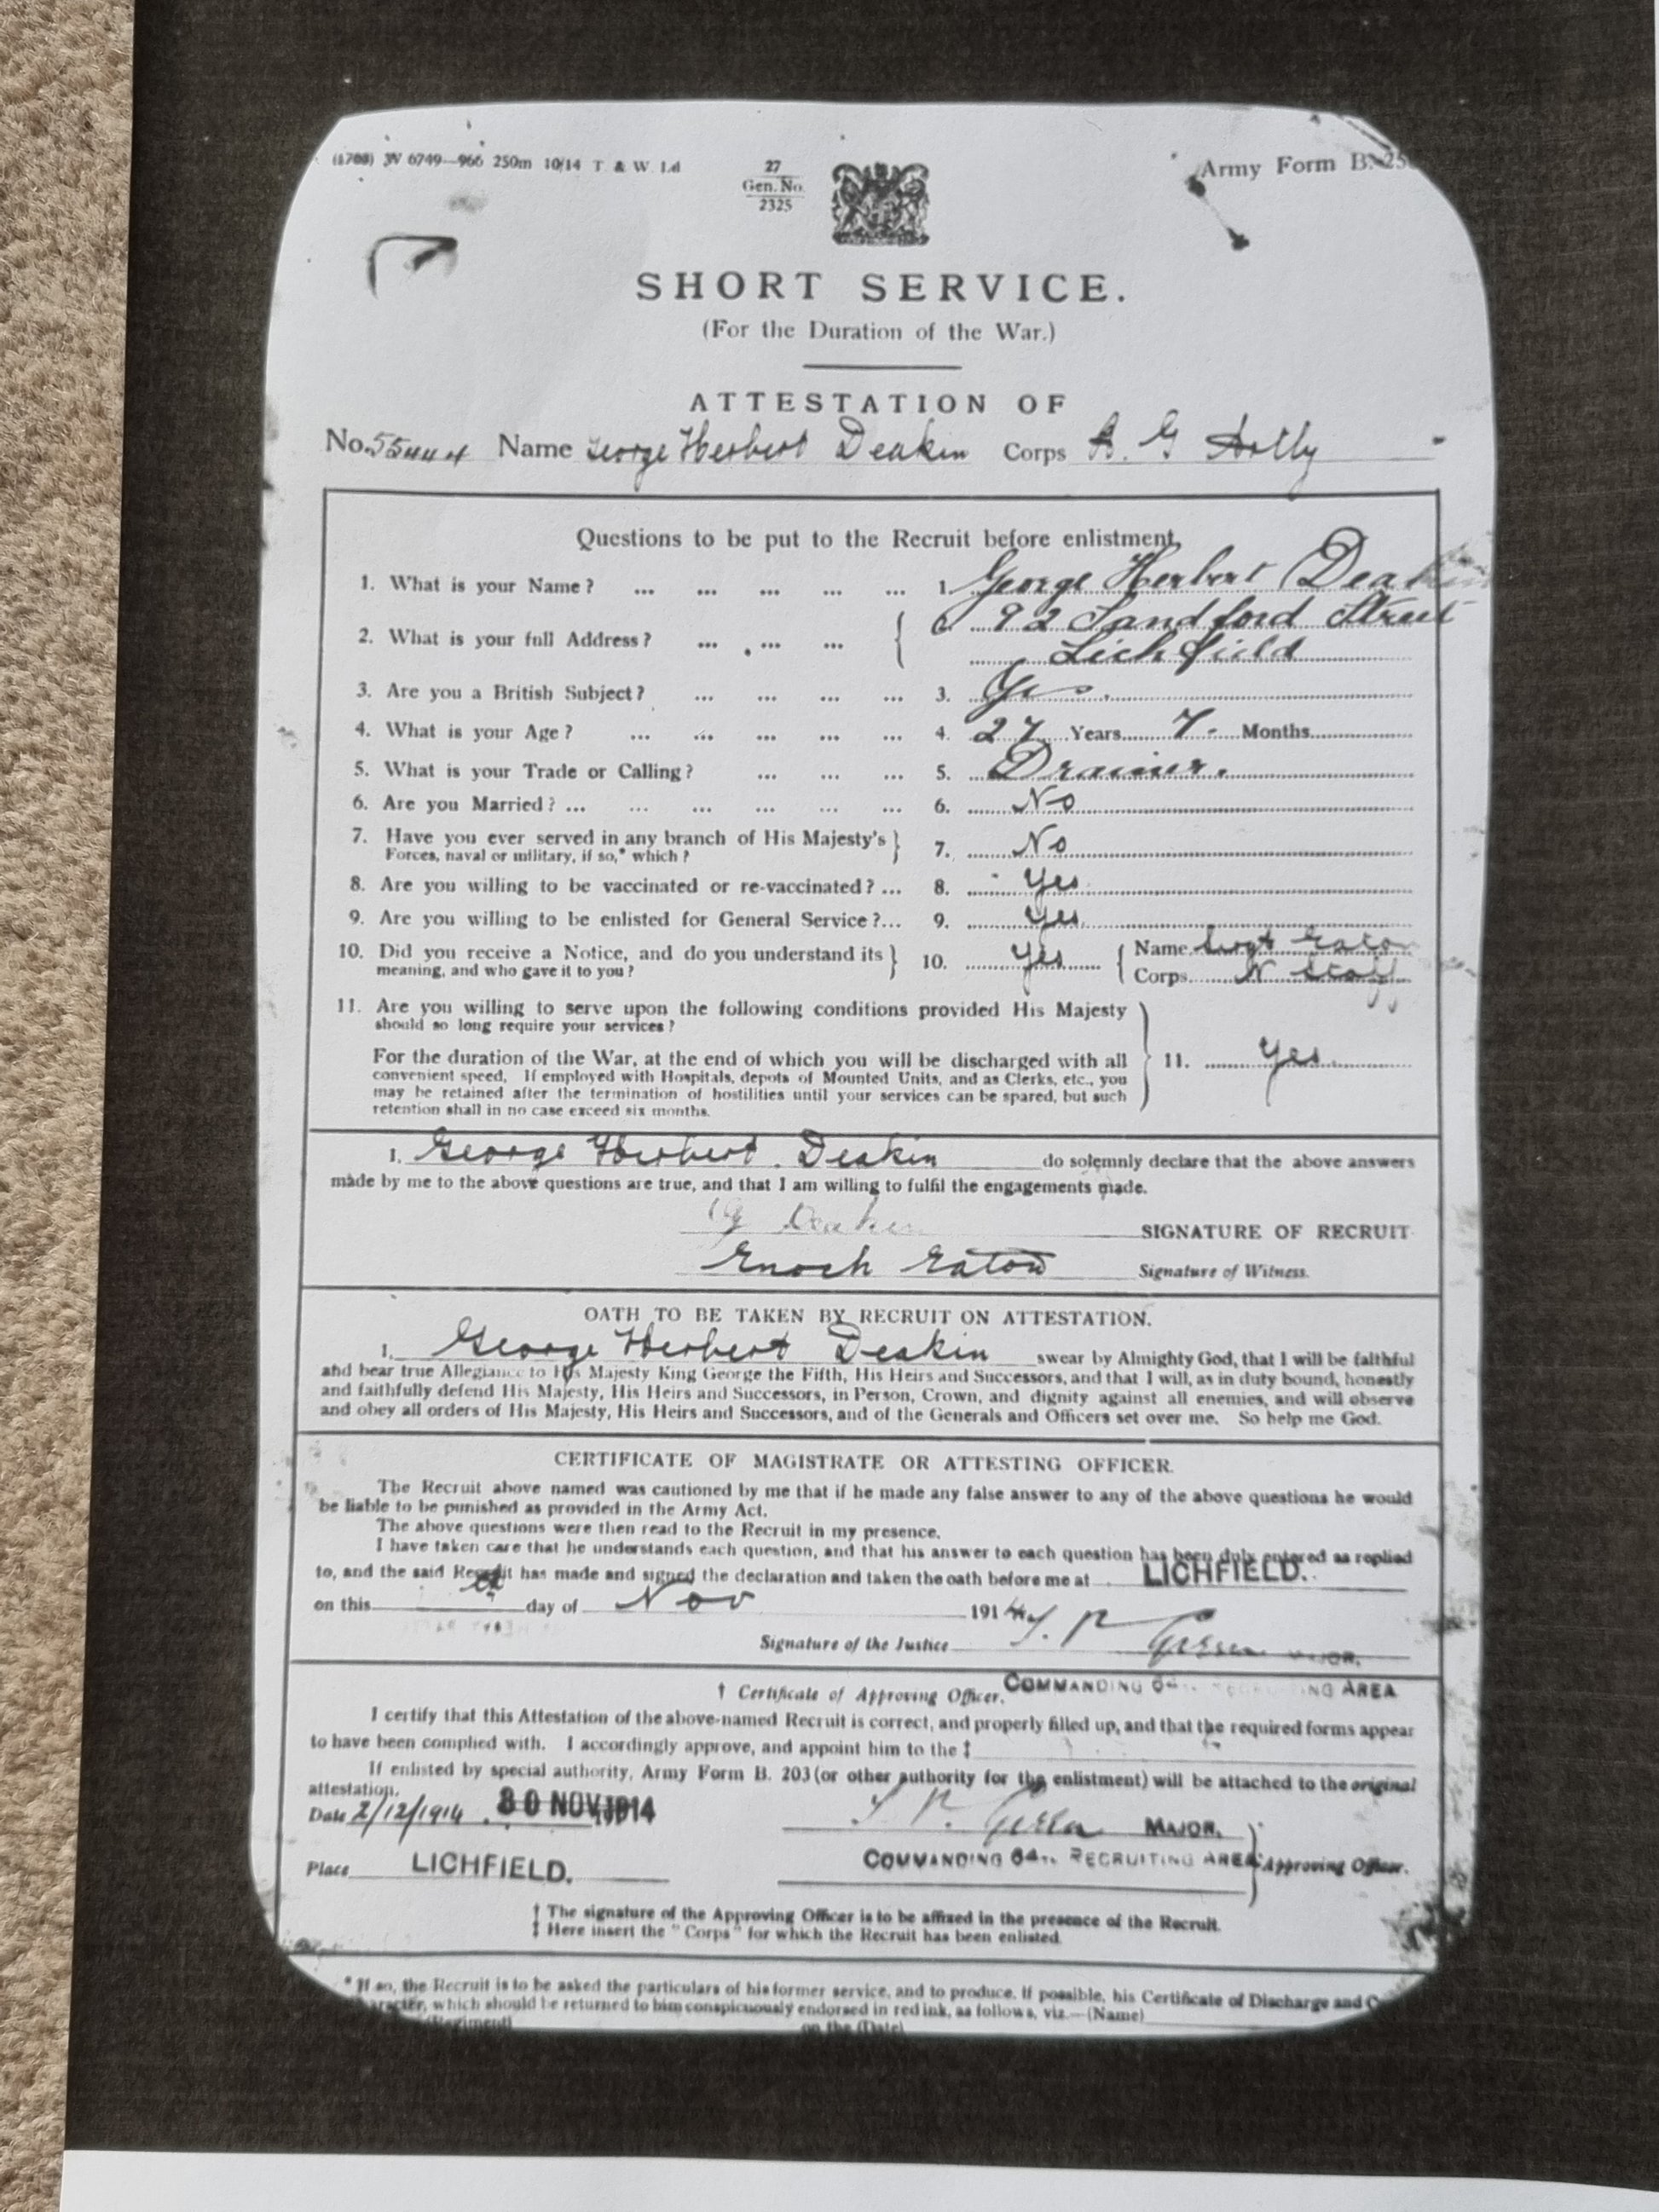 (1708) W 6749—966 250m 10/14 T & W Ltd 27 Army Form B. 25
Gen. No.
2325
SHORT SERVICE.
(For the Duration of the War.)
ATTESTATION OF
No. Name George Herbert Deakin Corps
Questions to be put to the Recruit before enlistment.
1. What is your Name? ... ... ... ... ... 1. George Herbert Deakin
2. What is your full Address? ... ... ... { 92 Sandford Street
Lichfield
3. Are you a British Subject? ... ... ... ... 3. Yes.
4. What is your Age? ... ... ... ... ... 4. 27 Years 7 Months
5. What is your Trade or Calling? ... ... ... 5. Drainer.
6. Are you Married? ... ... ... ... ... ... 6. No
7. Have you ever served in any branch of His Majesty's } 7. No
Forces, naval or military, if so,* which?
8. Are you willing to be vaccinated or re-vaccinated? ... 8. Yes
9. Are you willing to be enlisted for General Service? ... 9. Yes.
10. Did you receive a Notice, and do you understand its } 10. Yes { Name Sergt Eaton
meaning, and who gave it to you? Corps N Staff
11. Are you willing to serve upon the following conditions provided His Majesty
should so long require your services?
For the duration of the War, at the end of which you will be discharged with all } 11. Yes.
convenient speed. If employed with Hospitals, depots of Mounted Units, and as Clerks, etc., you
may be retained after the termination of hostilities until your services can be spared, but such
retention shall in no case exceed six months.
I, George Herbert Deakin do solemnly declare that the above answers
made by me to the above questions are true, and that I am willing to fulfil the engagements made.
G Deakin SIGNATURE OF RECRUIT
Enoch Eaton Signature of Witness.
OATH TO BE TAKEN BY RECRUIT ON ATTESTATION.
I, George Herbert Deakin swear by Almighty God, that I will be faithful
and bear true Allegiance to His Majesty King George the Fifth, His Heirs and Successors, and that I will, as in duty bound, honestly
and faithfully defend His Majesty, His Heirs and Successors, in Person, Crown, and dignity against all enemies, and will observe
and obey all orders of His Majesty, His Heirs and Successors, and of the Generals and Officers set over me. So help me God.
CERTIFICATE OF MAGISTRATE OR ATTESTING OFFICER.
The Recruit above named was cautioned by me that if he made any false answer to any of the above questions he would
be liable to be punished as provided in the Army Act.
The above questions were then read to the Recruit in my presence.
I have taken care that he understands each question, and that his answer to each question has been duly entered as replied
to, and the said Recruit has made and signed the declaration and taken the oath before me at LICHFIELD.
on this day of Nov 1914
Signature of the Justice
† Certificate of Approving Officer. COMMANDING 64TH RECRUITING AREA
I certify that this Attestation of the above-named Recruit is correct, and properly filled up, and that the required forms appear
to have been complied with. I accordingly approve, and appoint him to the ‡
If enlisted by special authority, Army Form B. 203 (or other authority for the enlistment) will be attached to the original
attestation.
Date 2/12/1914 30 NOV 1914 MAJOR,
Place LICHFIELD. COMMANDING 64TH RECRUITING AREA } Approving Officer.
† The signature of the Approving Officer is to be affixed in the presence of the Recruit.
‡ Here insert the "Corps" for which the Recruit has been enlisted.
* If so, the Recruit is to be asked the particulars of his former service, and to produce, if possible, his Certificate of Discharge and
which should be returned to him conspicuously endorsed in red ink, as follows, viz.—(Name)
(Regiment) on the (Date)